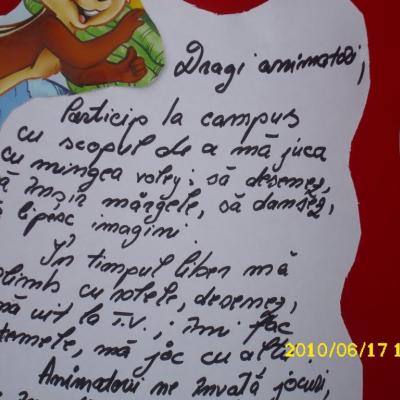 Dragi animatori,
Particip la campus
cu scopul de a mă juca
cu mingea voley; să desenez,
să înșir mărgele, să dansez,
să lipesc imagini.
În timpul liber mă
plimb cu rolele, desenez,
mă uit la T.V.; îmi fac
temele, mă joc cu alți
2010/06/17 1
Animatorii ne învață jocuri,